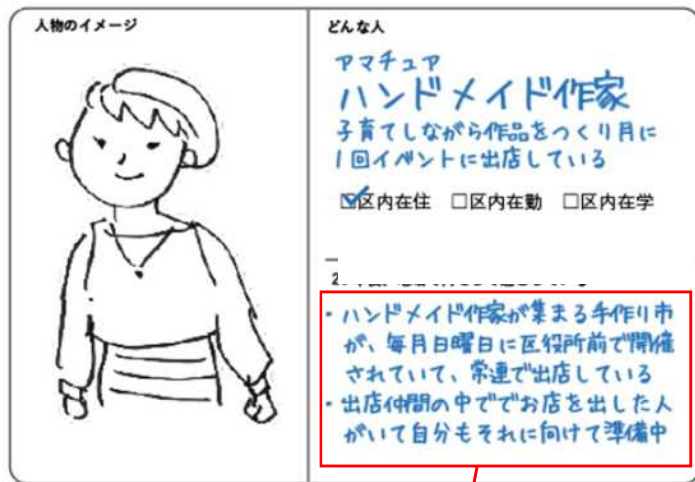 人物のイメージ
どんな人
アマチュア
ハンドメイド作家
子育てしながら作品をつくり月に
1回イベントに出店している
☑区内在住 □区内在勤 □区内在学
・ハンドメイド作家が集まる手作り市
が、毎月日曜日に区役所前で開催
されていて、常連で出店している
・出店仲間の中ででお店を出した人
がいて自分もそれに向けて準備中